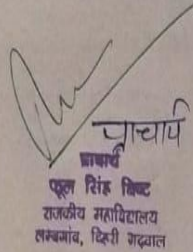 प्राचार्य
प्राचार्य
फूल सिंह बिष्ट
राजकीय महाविद्यालय
लम्बगांव, टिहरी गढ़वाल